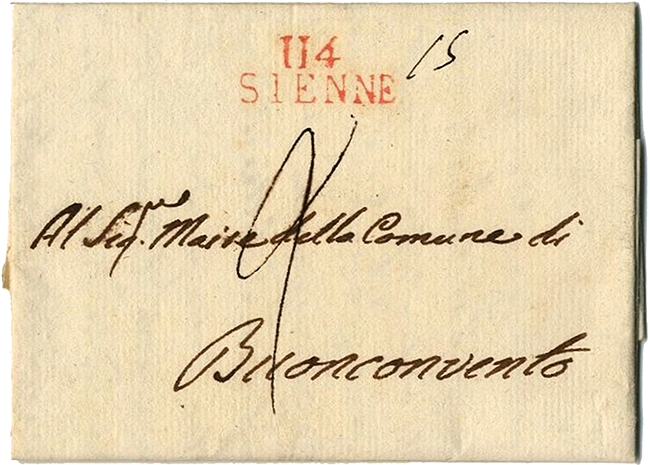 114
SIENNE
15
Al Sig.re Maire della Comune di
Buonconvento